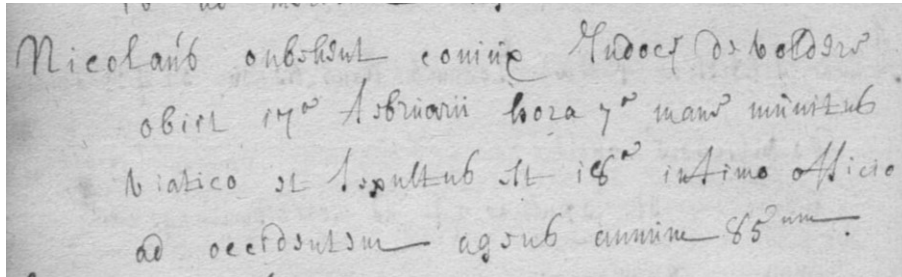 Nicolaus onbekent coniux Judoci de voldere
obiit 17a februarii hora 7a mane munitus
viatico et sepultus est 18a infimo officio
ad occidentem agens annum 85um.